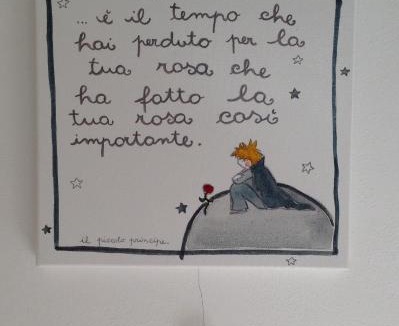 ... è il tempo che
hai perduto per la
tua rosa che
ha fatto la
tua rosa così
importante.
il piccolo principe.